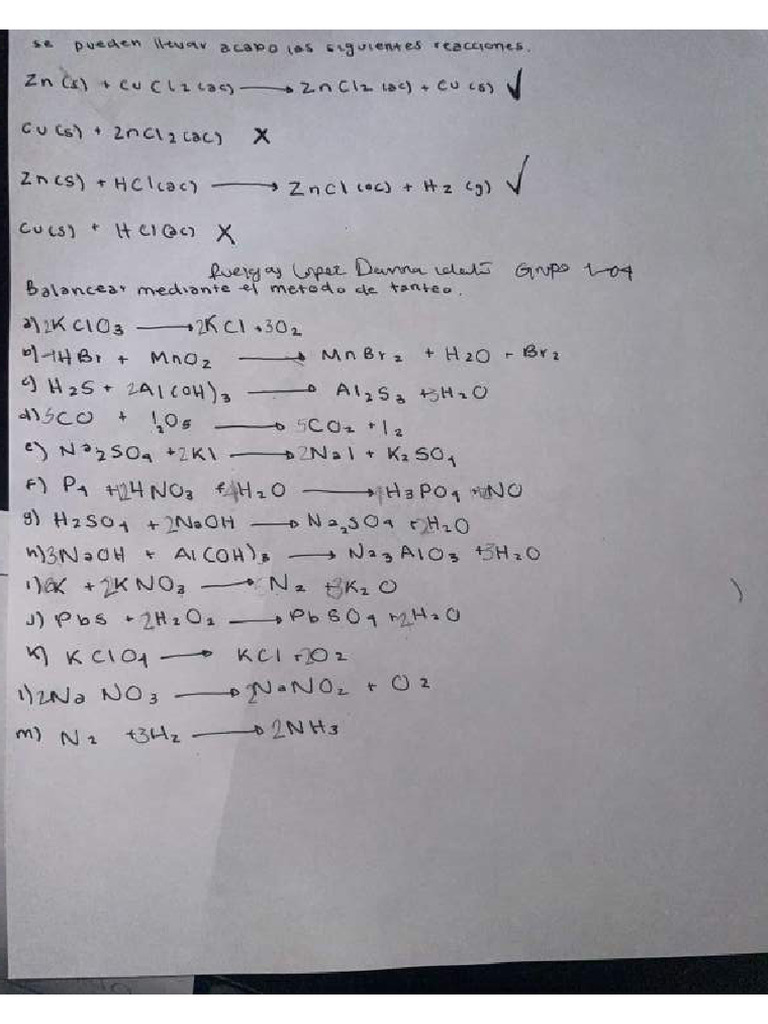 se pueden llevar acabo las siguientes reacciones.
Zn(s) + CuCl2(ac) → ZnCl2(ac) + Cu(s) ✓
Cu(s) + ZnCl2(ac) X
Zn(s) + HCl(ac) → ZnCl(ac) + H2(g) ✓
Cu(s) + HCl(ac) X
Lopez Danna Grupo
Balancear mediante el metodo de tanteo.
a) 2KClO3 → 2KCl + 3O2
b) 4HBr + MnO2 → MnBr2 + H2O + Br2
c) H2S + 2Al(OH)3 → Al2S3 + 3H2O
d) 5CO + I2O5 → 5CO2 + I2
e) Na2SO4 + 2KI → 2NaI + K2SO4
f) P4 + HNO3 + H2O → H3PO4 + NO
g) H2SO4 + 2NaOH → Na2SO4 + 2H2O
h) 3NaOH + Al(OH)3 → Na3AlO3 + 3H2O
i) K + 2KNO3 → N2 + K2O
j) PbS + 2H2O2 → PbSO4 + 2H2O
k) KClO4 → KCl + 2O2
l) 2NaNO3 → 2NaNO2 + O2
m) N2 + 3H2 → 2NH3